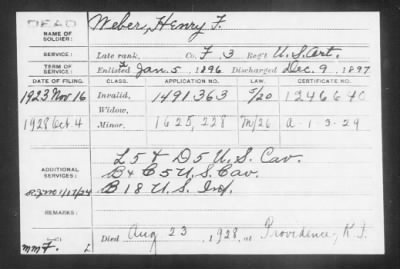 DEAD
NAME OF SOLDIER: Weber, Henry F.
SERVICE: Late rank, Co. F. 3 Reg't U.S. Art.
TERM OF SERVICE: Enlisted Jan. 5, 1896 Discharged Dec. 9, 1897
DATE OF FILING.
1923 Nov 16 Invalid, 1491.363 5/20 1246640
Widow,
1928 Oct. 4 Minor, 1625,228 M/26 A-1-3-29
ADDITIONAL SERVICES: L 5 & D 5 U.S. Cav.
B & C 5 U.S. Cav.
B 18 U.S. Inf.
REMARKS:
Died Aug 23, 1928, at Providence, R.I.
L